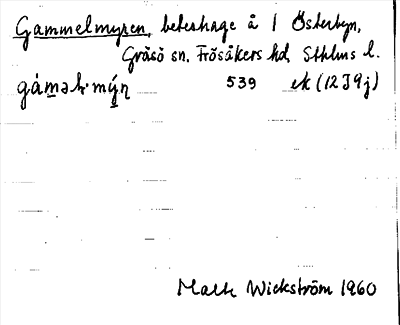 Gammelmyren, beteshage å 1 Österbyn,
Gräsö sn. Frösåkers hd, Sthlms l.
539 ek (12J9j)
Wickström 1960